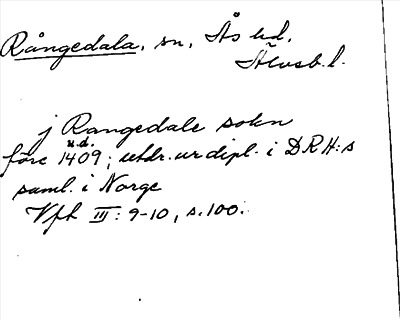 Rångedala, sn, Ås hd.
Älvsb. l.
j Rangedale sokn
u.d.
före 1409; utdr. ur dipl. i DRH:s
saml. i Norge
Vfh III: 9-10, s. 100.